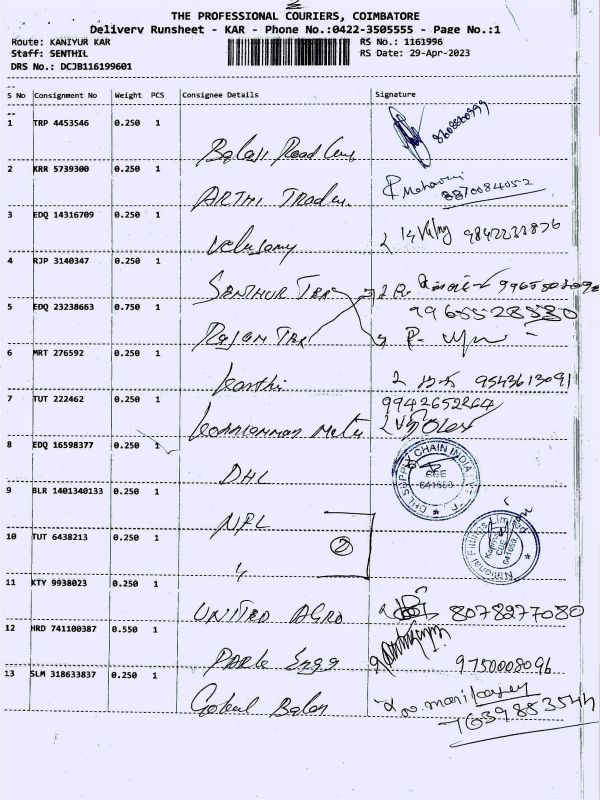 2
THE PROFESSIONAL COURIERS, COIMBATORE
Delivery Runsheet - KAR - Phone No.:0422-3505555 - Page No.:1
Route: KANIYUR KAR RS No.: 1161996
Staff: SENTHIL RS Date: 29-Apr-2023
DRS No.: DCJB116199601
S No Consignment No Weight PCS Consignee Details Signature
1 TRP 4453546 0.250 1
Balaji Road
2 KRR 5739300 0.250 1
ARTHI Traders 8870084052
3 EDQ 14316709 0.250 1
Velusamy 9842222876
4 RJP 3140347 0.250 1
SENTHUR Tex
5 EDQ 23238663 0.750 1
Rajam Tex
6 MRT 276592 0.250 1
Karthi 9543613091
7 TUT 222462 0.250 1
9942652264
8 EDQ 16598377 0.250 1
DHL
DHL SUPPLY CHAIN INDIA PVT
CBE
641659
9 BLR 1401340133 0.250 1
NFL
10 TUT 6438213 0.250 1
2
National Fittings Limited
CBE
641659
11 KTY 9938023 0.250 1
UNITED AGRO 8078277080
12 HRD 741100387 0.550 1
Parle Engg 9750008096
13 SLM 318633837 0.250 1
Gokul Balan